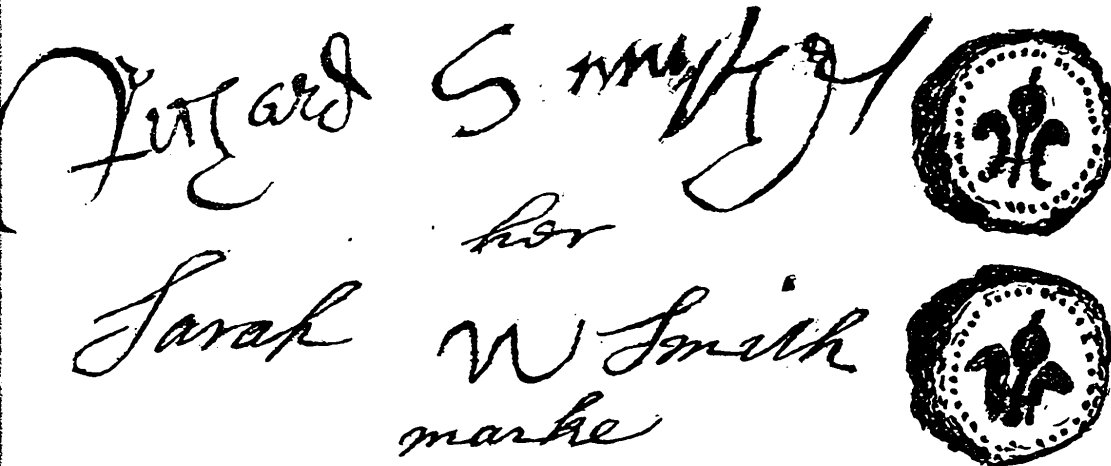 Richard
her
Sarah W Smith
marke